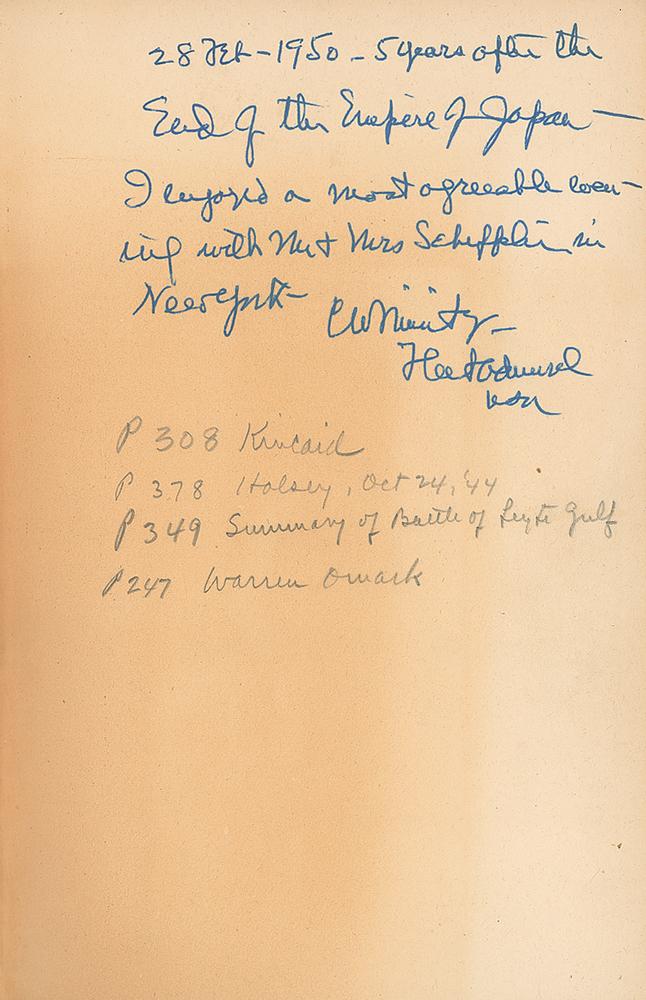 28 Feb - 1950 - 5 years after the
End of the Empire of Japan —
I enjoyed a most agreeable even-
ing with Mr + Mrs Schiffelin in
New York -
CW Nimitz -
Fleet Admiral
USN
P 308 Kincaid
P 378 Halsey, Oct 24, '44
P 349 Summary of Battle of Leyte Gulf
P 247 Warren Omark